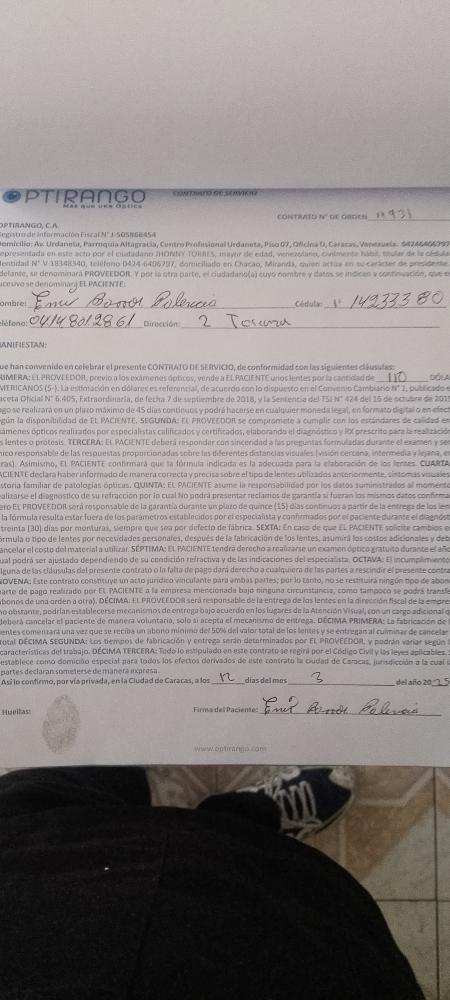 OPTIRANGO
Más que una Óptica
CONTRATO DE SERVICIO
CONTRATO N° DE ORDEN
OPTIRANGO, C.A.
Registro de Información Fiscal N° J-505868454
Domicilio: Av. Urdaneta, Parroquia Altagracia, Centro Profesional Urdaneta, Piso 07, Oficina D, Caracas, Venezuela. 04246406797
representada en este acto por el ciudadano JHONNY TORRES, mayor de edad, venezolano, civilmente hábil, titular de la cédula
identidad N° V-18348340, teléfono 0424-6406797, domiciliado en Chacao, Miranda, quien actúa en su carácter de presidente.
delante, se denominará PROVEEDOR. Y por la otra parte, el ciudadano(a) cuyo nombre y datos se indican a continuación, que en
sucesivo se denominará EL PACIENTE:
ombre: Cédula: 14233380
eléfono: 04148012861 Dirección: 2
MANIFIESTAN:
ue han convenido en celebrar el presente CONTRATO DE SERVICIO, de conformidad con las siguientes cláusulas:
RIMERA: EL PROVEEDOR, previo a los exámenes ópticos, vende a EL PACIENTE unos lentes por la cantidad de 110 DÓLA
MERICANOS ($-). La estimación en dólares es referencial, de acuerdo con lo dispuesto en el Convenio Cambiario N° 1, publicado e
aceta Oficial N° 6.405, Extraordinaria, de fecha 7 de septiembre de 2018, y la Sentencia del TSJ N° 424 del 16 de octubre de 2019
ago se realizará en un plazo máximo de 45 días continuos y podrá hacerse en cualquier moneda legal, en formato digital o en efect
egún la disponibilidad de EL PACIENTE. SEGUNDA: EL PROVEEDOR se compromete a cumplir con los estándares de calidad en
xámenes ópticos realizados por especialistas calificados y certificados, elaborando el diagnóstico y RX prescrito para la realización
s lentes o prótesis. TERCERA: EL PACIENTE deberá responder con sinceridad a las preguntas formuladas durante el examen y ser
nico responsable de las respuestas proporcionadas sobre las diferentes distancias visuales (visión cercana, intermedia y lejana, en
ras). Asimismo, EL PACIENTE confirmará que la fórmula indicada es la adecuada para la elaboración de los lentes. CUARTA:
ACIENTE declara haber informado de manera correcta y precisa sobre el tipo de lentes utilizados anteriormente, síntomas visuales
storia familiar de patologías ópticas. QUINTA: EL PACIENTE asume la responsabilidad por los datos suministrados al momento
ealizarse el diagnostico de su refracción por lo cual No podrá presentar reclamos de garantía si fueran los mismos datos confirma
ero EL PROVEEDOR será responsable de la garantía durante un plazo de quince (15) días continuos a partir de la entrega de los len
la fórmula resulta estar fuera de los parámetros establecidos por el especialista y confirmados por el paciente durante el diagnóst
treinta (30) días por monturas, siempre que sea por defecto de fábrica. SEXTA: En caso de que EL PACIENTE solicite cambios e
órmula o tipo de lentes por necesidades personales, después de la fabricación de los lentes, asumirá los costos adicionales y deb
ancelar el costo del material a utilizar. SÉPTIMA: EL PACIENTE tendrá derecho a realizarse un examen óptico gratuito durante el año
ual podrá ser ajustado dependiendo de su condición refractiva y de las indicaciones del especialista. OCTAVA: El incumplimiento
lguna de las cláusulas del presente contrato o la falta de pago dará derecho a cualquiera de las partes a rescindir el presente contrat
NOVENA: Este contrato constituye un acto jurídico vinculante para ambas partes; por lo tanto, no se restituirá ningún tipo de abon
parte de pago realizado por EL PACIENTE a la empresa mencionado bajo ninguna circunstancia, como tampoco se podrá transfe
abonos de una orden a otra). DÉCIMA: EL PROVEEDOR será responsable de la entrega de los lentes en la dirección fiscal de la empre
no obstante, podrían establecerse mecanismos de entrega bajo acuerdo en los lugares de la Atención Visual, con un cargo adicional
deberá cancelar el paciente de manera voluntaria, solo si acepta el mecanismo de entrega. DÉCIMA PRIMERA: La fabricación de
entes comenzará una vez que se reciba un abono mínimo del 50% del valor total de los lentes y se entregan al culminar de cancelar
total DÉCIMA SEGUNDA: Los tiempos de fabricación y entrega serán determinados por EL PROVEEDOR, y podrán variar según l
características del trabajo. DÉCIMA TERCERA: Todo lo estipulado en este contrato se regirá por el Código Civil y las leyes aplicables. S
establece como domicilio especial para todos los efectos derivados de este contrato la ciudad de Caracas, jurisdicción a la cual l
partes declaran someterse de manera expresa.
Así lo confirmo, por vía privada, en la Ciudad de Caracas, a los 12 días del mes 3 del año 2025
Huellas: Firma del Paciente:
www.optirango.com